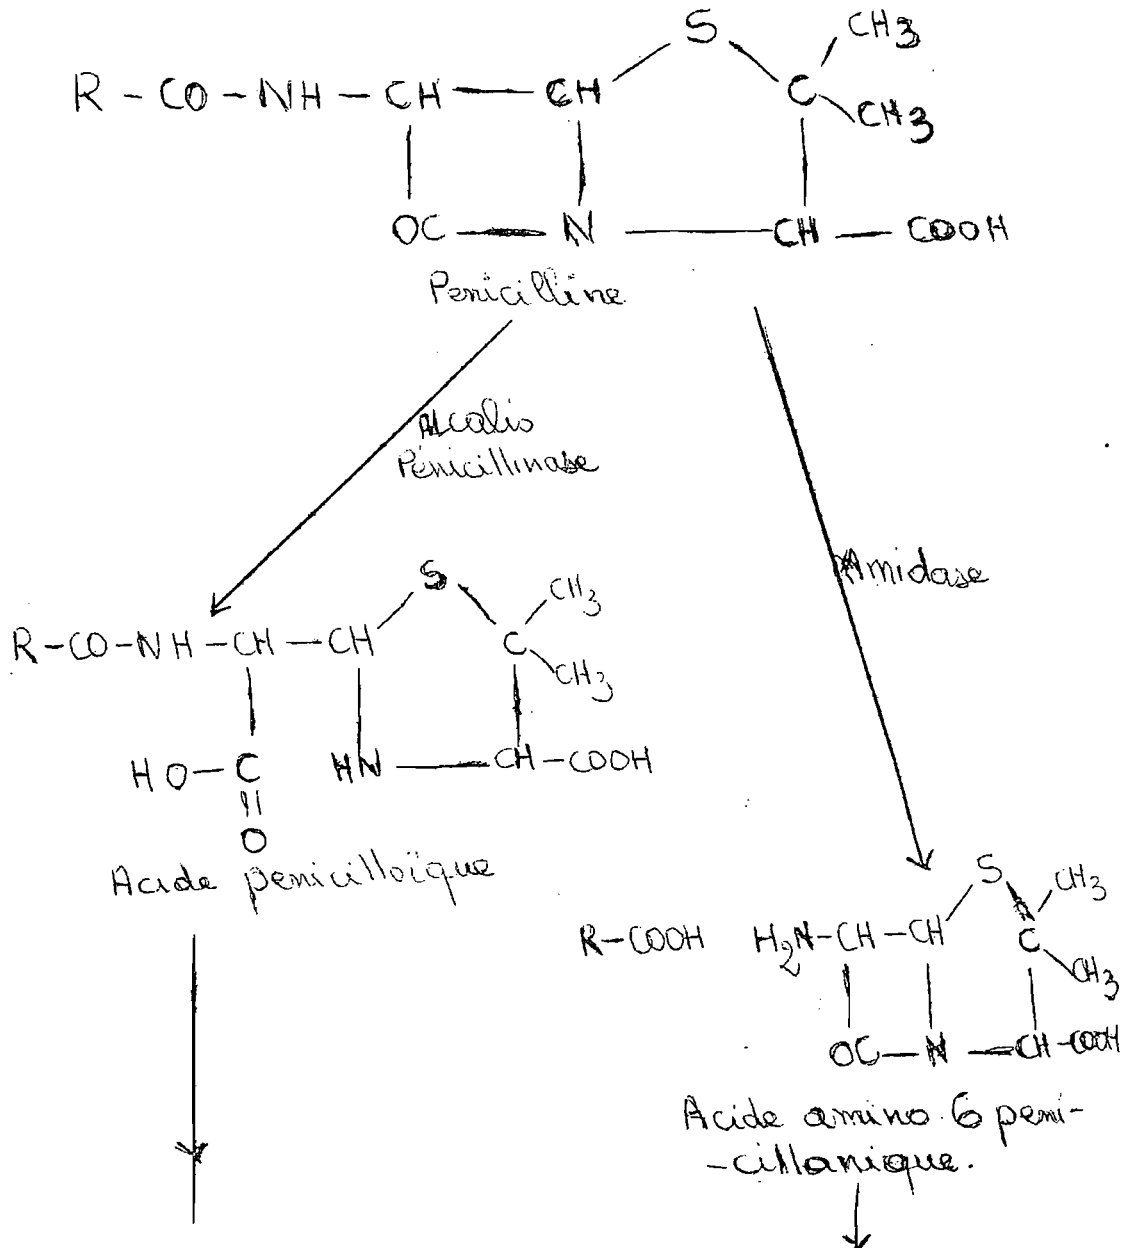 S CH3
R - CO - NH - CH - CH C
CH3
OC - N - CH - COOH
Penicilline
Alcalis
Pénicillinase
Amidase
S CH3
R-CO-NH-CH-CH C
CH3
HO-C HN - CH-COOH
O
Acide penicilloïque
S CH3
R-COOH H2N-CH-CH C
CH3
OC-N-CH-COOH
Acide amino.6 peni-
-cillanique.